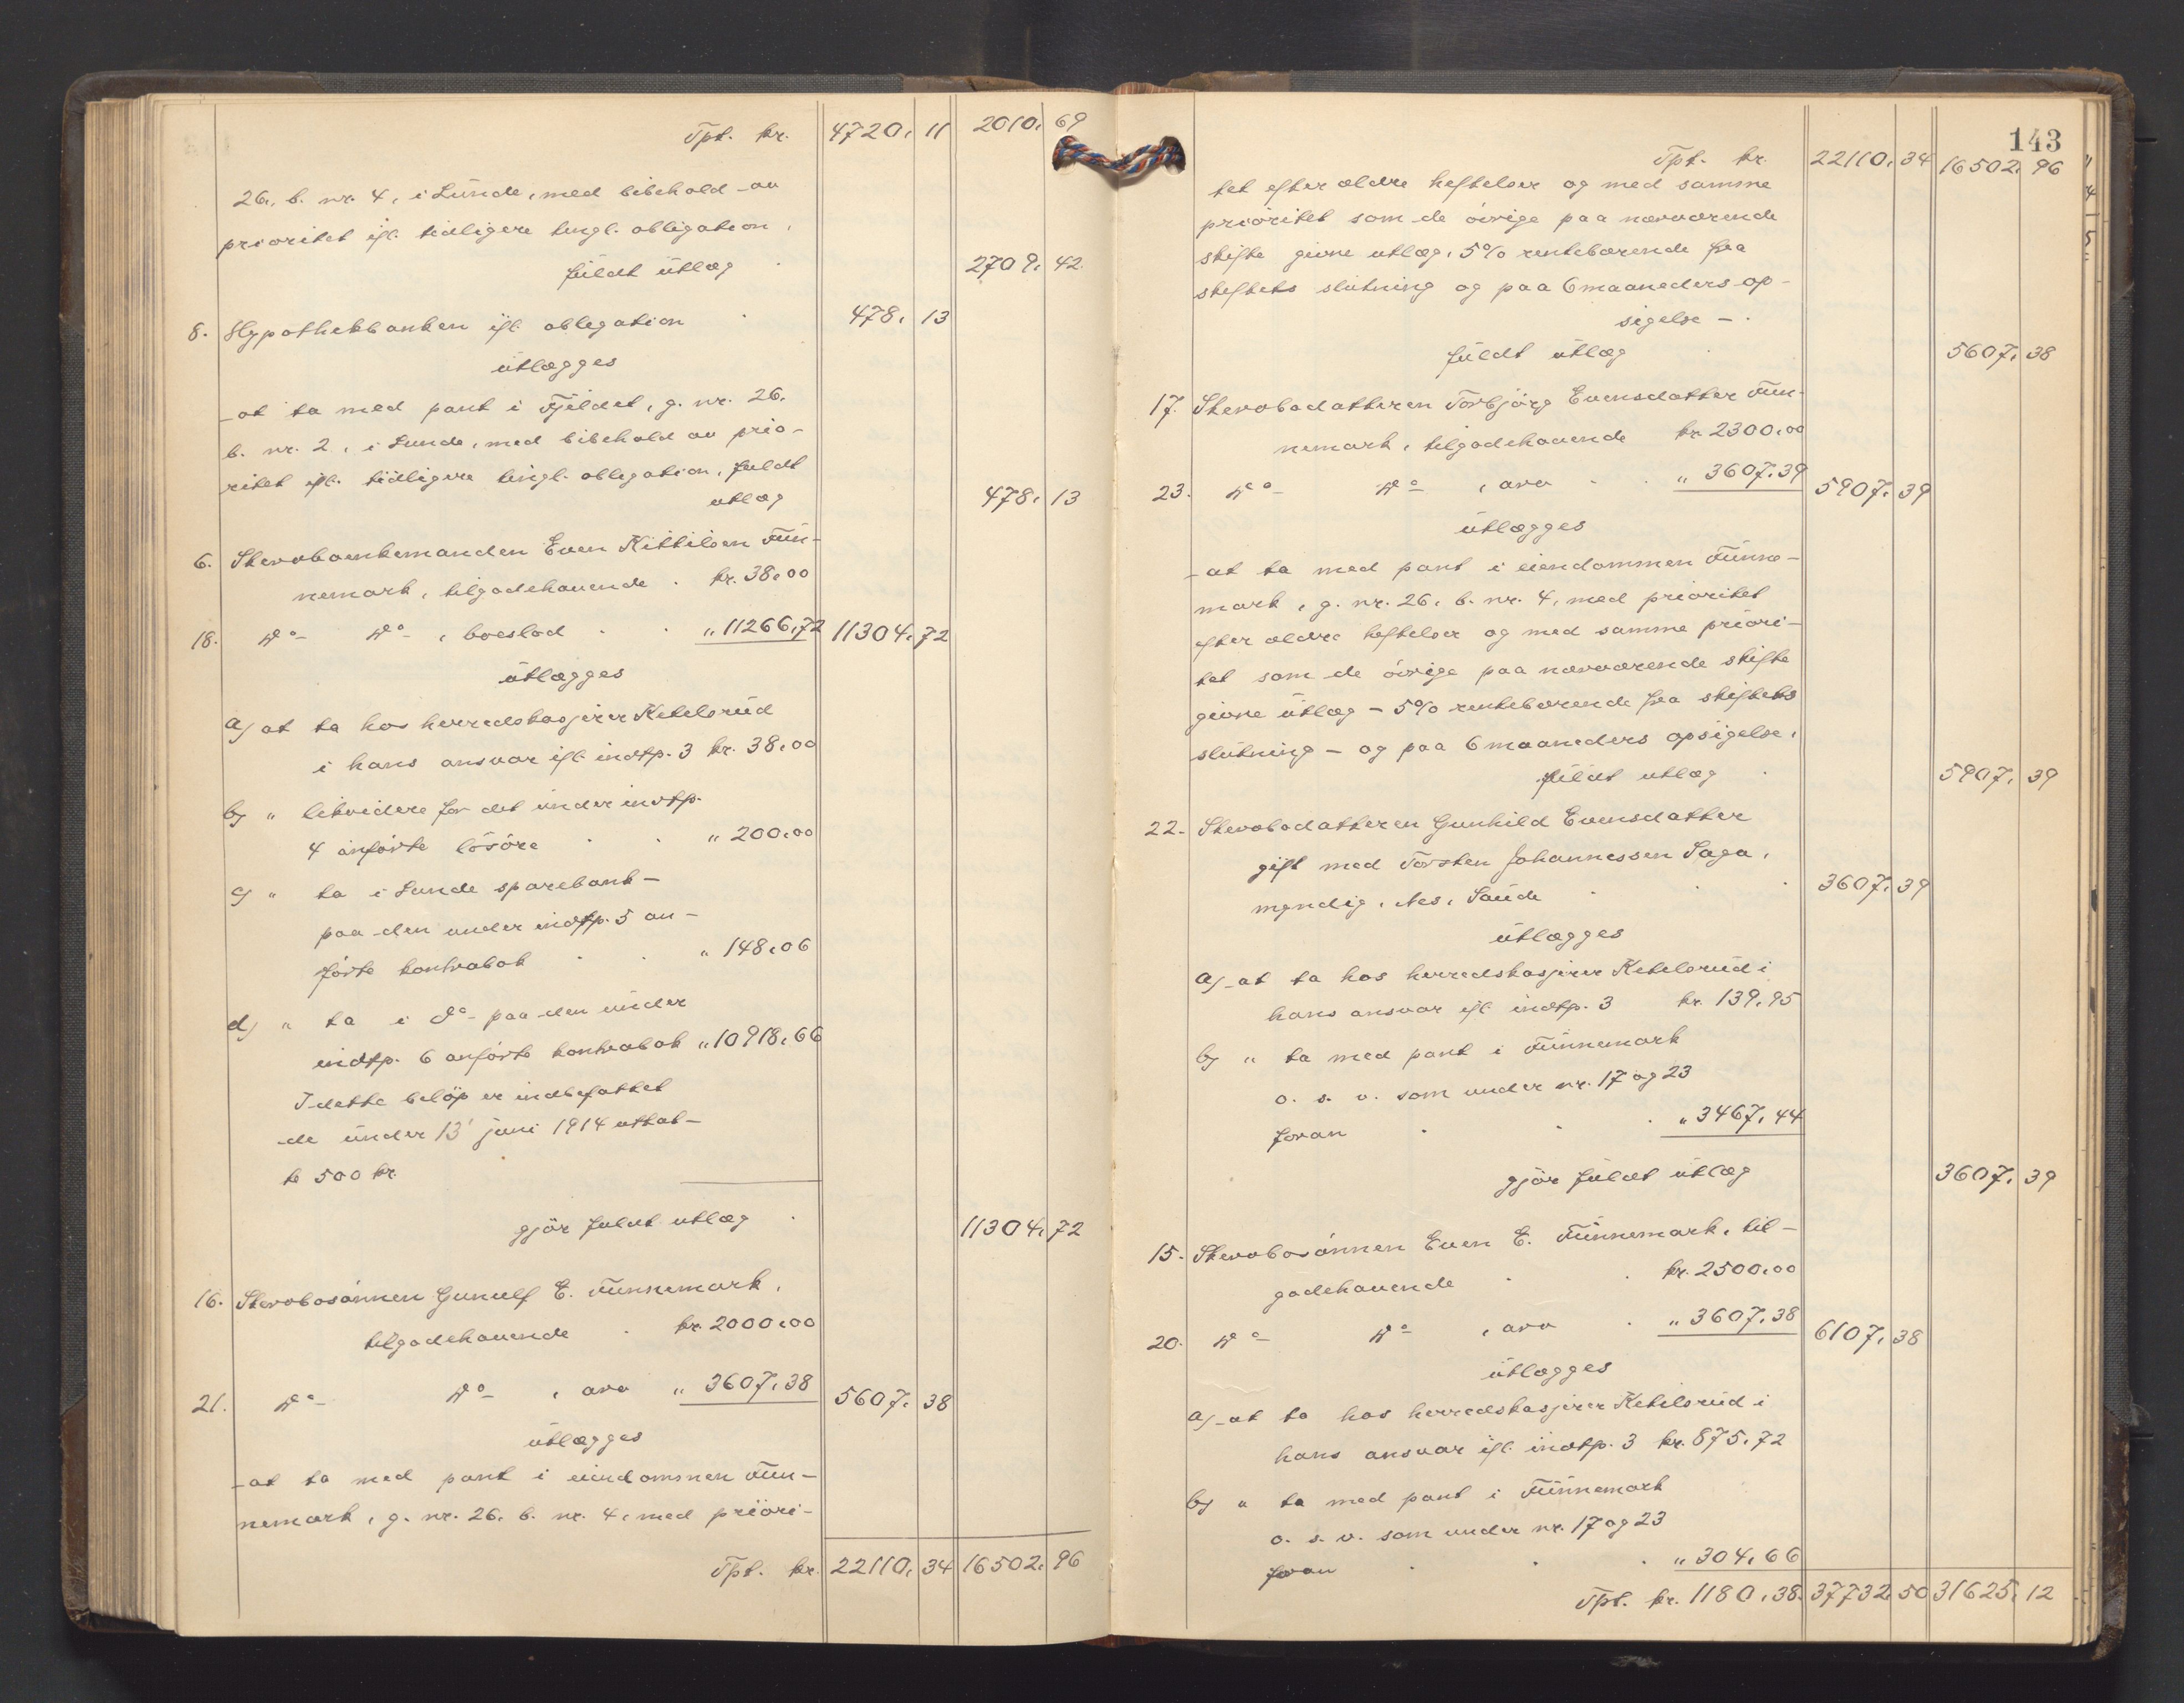 Tpt. kr. 4720, 11 2010, 69
26, b. nr. 4, i Lunde, med bibehold av
prioritet ifl. tidligere tingl. obligation,
fuldt utlæg 2709, 42
8. Hypothekbanken ifl. obligation 478, 13
utlægges
at ta med pant i Fjeldet, g. nr. 26,
b. nr. 2, i Lunde, med bibehold av prio-
ritet ifl. tidligere tingl. obligation, fuldt
utlæg 478, 13
6. Stervboenkemanden Even Kittilsen Tun-
nemark, tilgodehavende kr. 38,00
18. Do Do, boeslod " 11266,72 11304,72
utlægges
a) at ta hos herredskasjerer Ketilsrud
i hans ansvar ifl. indtp. 3 kr. 38,00
b) " likvidere for det under indtp.
4 anförte lösöre " 200,00
c) " ta i Lunde sparebank -
paa den under indtp. 5 an-
förte kontrabok " 148,06
d) " ta i do paa den under
indtp. 6 anförte kontrabok " 10918,66
I dette belöp er indbefattet
de under 13' juni 1914 uttat-
te 500 kr.
gjör fuldt utlæg 11304,72
16. Stervbosönnen Gunulf E. Tunnemark,
tilgodehavende kr. 2000,00
21. Do Do, arv " 3607,38 5607, 38
utlægges
at ta med pant i eiendommen Tun-
nemark, g. nr. 26, b. nr. 4, med priori-
Tpt. kr. 22110, 34 16502, 96
143
Tpt. kr. 22110, 34 16502, 96
tet efter ældre heftelser og med samme
prioritet som de övrige paa nærværende
skifte givne utlæg, 5% rentebærende fra
skiftets slutning og paa 6 maaneders op-
sigelse -
fuldt utlæg 5607, 38
17. Stervbodatteren Torbjörg Evensdatter Tun-
nemark, tilgodehavende kr. 2300,00
23. Do Do, arv " 3607,39 5907, 39
utlægges
at ta med pant i eiendommen Tunne-
mark, g. nr. 26, b. nr. 4, med prioritet
efter ældre heftelser og med samme priori-
tet som de övrige paa nærværende skifte
givne utlæg - 5% rentebærende fra skiftets
slutning - og paa 6 maaneders opsigelse,
fuldt utlæg 5907, 39
22. Stervbodatteren Gunhild Evensdatter
gift med Torsten Johannessen Saga,
myndig, Nes, Saude 3607, 39
utlægges
a) at ta hos herredskasjerer Ketilsrud i
hans ansvar ifl. indtp. 3 kr. 139,95
b) " ta med pant i Tunnemark
o. s. v. som under nr. 17 og 23
foran " 3467,44
gjör fuldt utlæg 3607, 39
15. Stervbosönnen Even E. Tunnemark, til-
godehavende kr. 2500,00
20. Do Do, arv " 3607,38 6107, 38
utlægges
a) at ta hos herredskasjerer Ketilsrud i
hans ansvar ifl. indtp. 3 kr. 875,72
b) " ta med pant i Tunnemark
o. s. v. som under nr. 17 og 23
foran " 304,66
Tpt. kr. 1180,38. 37732, 50 31625, 12